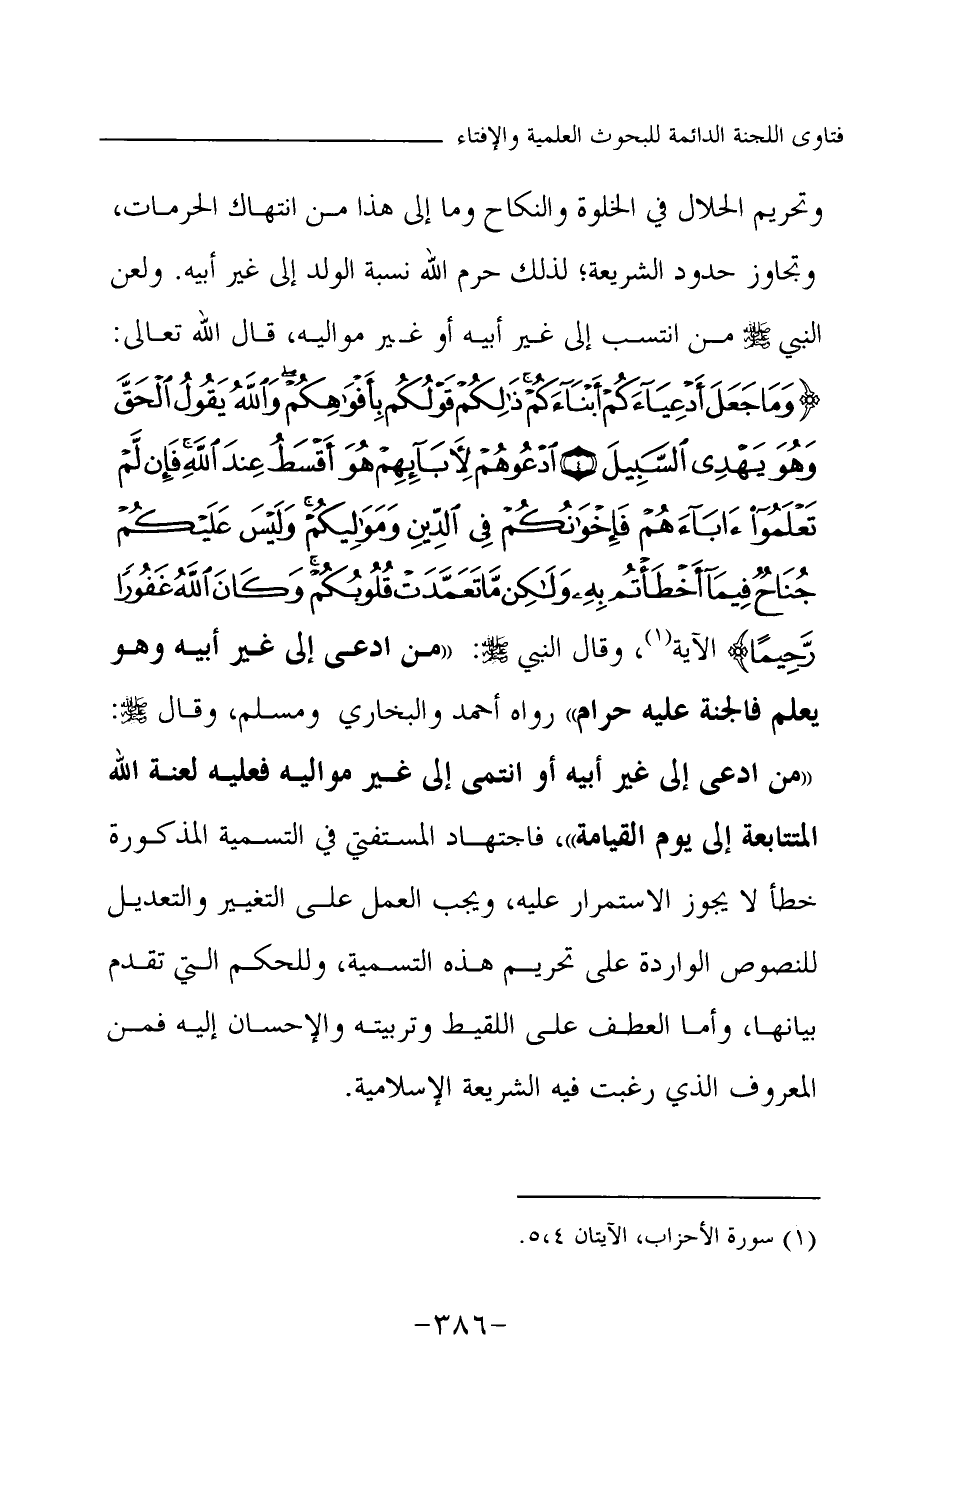 فتاوى اللجنة الدائمة للبحوث العلمية والإفتاء
وتحريم الحلال في الخلوة والنكاح وما إلى هذا من انتهاك الحرمات،
وتجاوز حدود الشريعة؛ لذلك حرم الله نسبة الولد إلى غير أبيه. ولعن
النبي ﷺ من انتسب إلى غير أبيه أو غير مواليه، قال الله تعالى:
﴿وَمَا جَعَلَ أَدْعِيَآءَكُمْ أَبْنَآءَكُمْۚ ذَٰلِكُمْ قَوْلُكُم بِأَفْوَٰهِكُمْۖ وَٱللَّهُ يَقُولُ ٱلْحَقَّ
وَهُوَ يَهْدِى ٱلسَّبِيلَ ۝٤ ٱدْعُوهُمْ لِأَبَآئِهِمْ هُوَ أَقْسَطُ عِندَ ٱللَّهِۚ فَإِن لَّمْ
تَعْلَمُوٓا۟ ءَابَآءَهُمْ فَإِخْوَٰنُكُمْ فِى ٱلدِّينِ وَمَوَٰلِيكُمْۚ وَلَيْسَ عَلَيْكُمْ
جُنَاحٌ فِيمَآ أَخْطَأْتُم بِهِۦ وَلَٰكِن مَّا تَعَمَّدَتْ قُلُوبُكُمْۚ وَكَانَ ٱللَّهُ غَفُورًا
رَّحِيمًا﴾ الآية(١)، وقال النبي ﷺ: «من ادعى إلى غير أبيه وهو
يعلم فالجنة عليه حرام» رواه أحمد والبخاري ومسلم، وقال ﷺ:
«من ادعى إلى غير أبيه أو انتمى إلى غير مواليه فعليه لعنة الله
المتتابعة إلى يوم القيامة»، فاجتهاد المستفتي في التسمية المذكورة
خطأ لا يجوز الاستمرار عليه، ويجب العمل على التغيير والتعديل
للنصوص الواردة على تحريم هذه التسمية، وللحكم التي تقدم
بيانها، وأما العطف على اللقيط وتربيته والإحسان إليه فمن
المعروف الذي رغبت فيه الشريعة الإسلامية.
(١) سورة الأحزاب، الآيتان ٤،٥.
-٣٨٦-